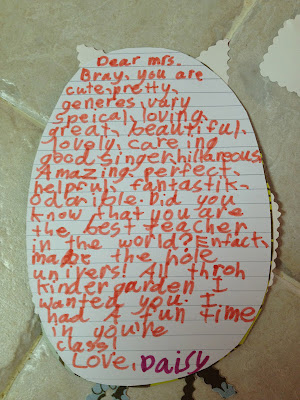 Dear mrs.
Bray, you are
cute, pretty,
generes, vary
speical, loving,
great, beautiful,
lovely, care ing
good singer, hillareous,
Amazing, perfect,
helpful, fantastik,
Odorible. Did you
know that you are
the best teacher
in the world? Entact,
made the hole
univers! All throh
kindergarden I
wanted you. I
had A fun time
in you're
class!
Love, Daisy